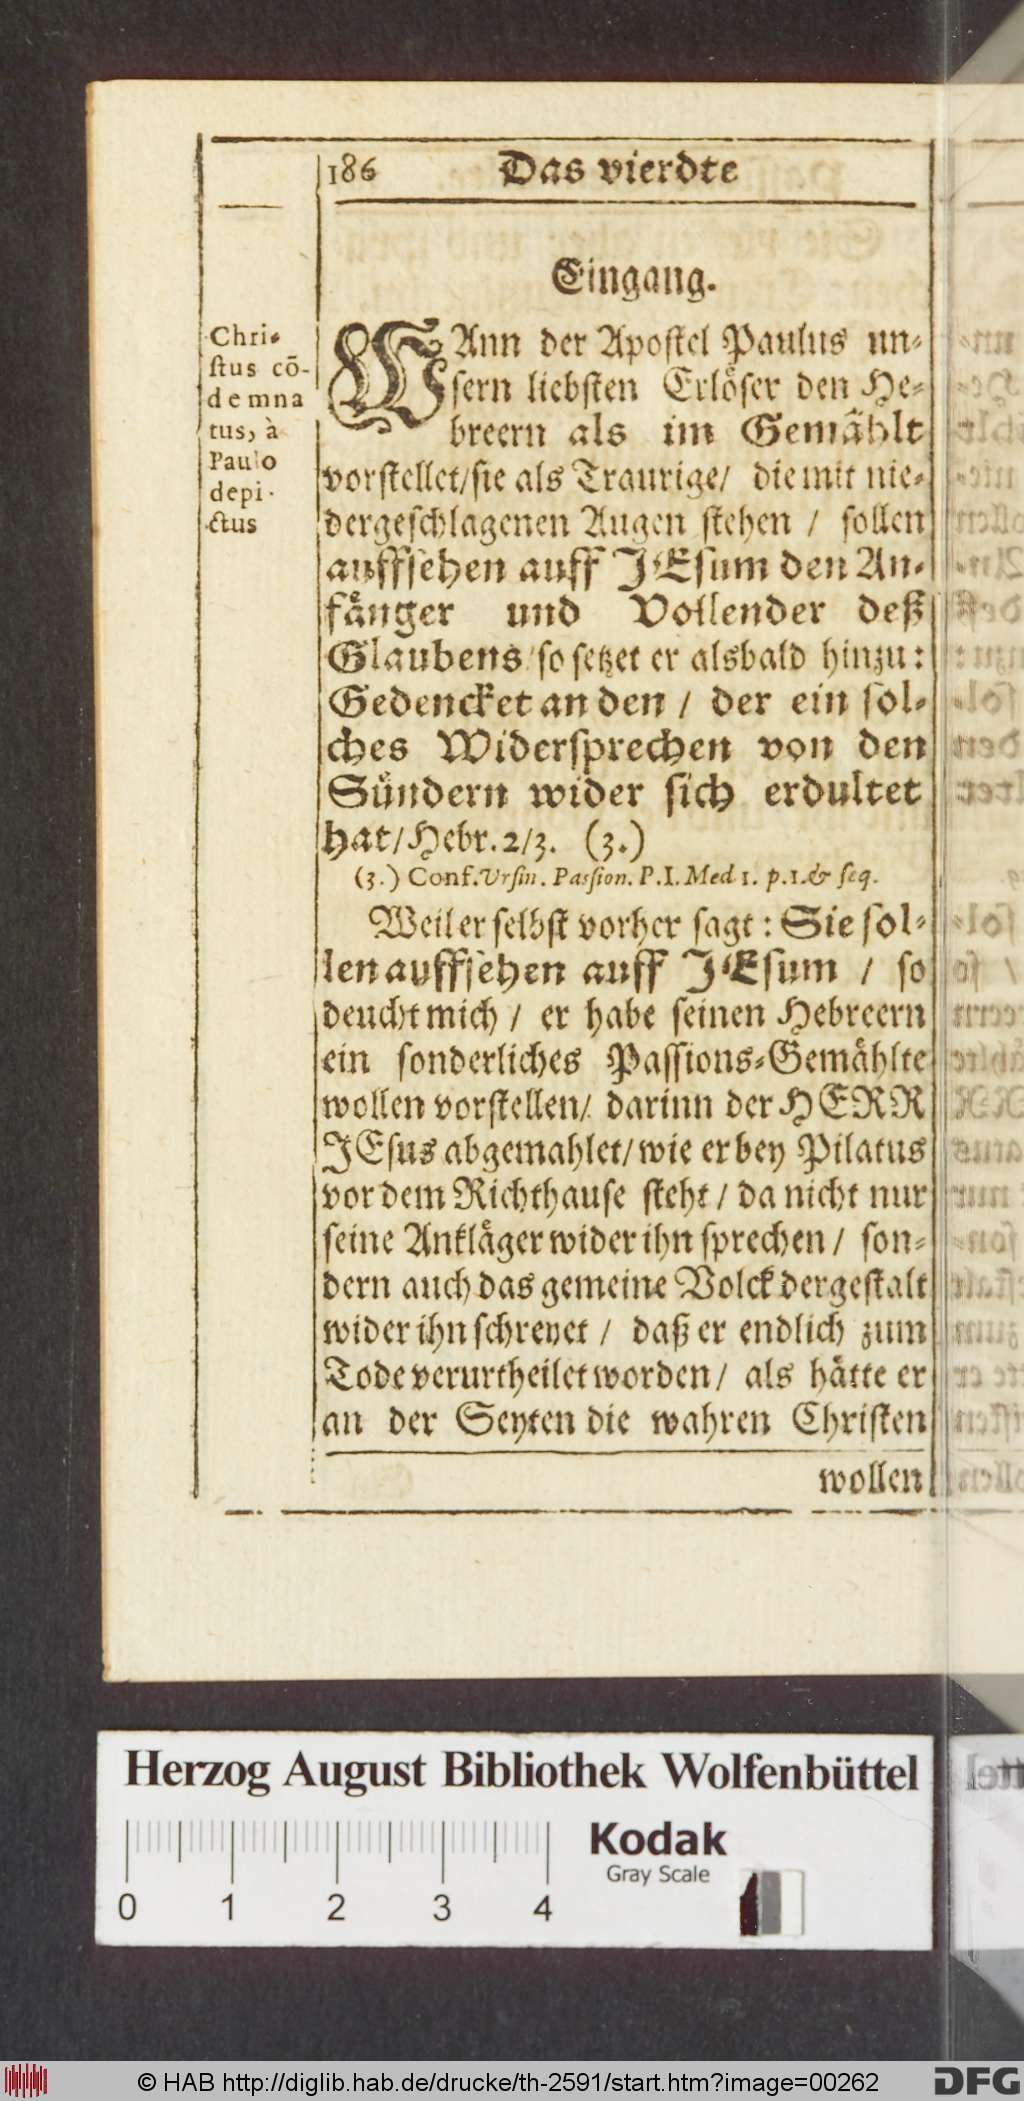 186 Das vierdte
Eingang.
Chri-
stus cō-
demna
tus, à
Paulo
depi-
ctus
WAnn der Apostel Paulus un-
sern liebsten Erlöser den He-
breern als im Gemählt
vorstellet/sie als Traurige/ die mit nie-
dergeschlagenen Augen stehen / sollen
auffsehen auff JEsum den An-
fänger und Vollender deß
Glaubens/so setzet er alsbald hinzu:
Gedencket an den / der ein sol-
ches Widersprechen von den
Sündern wider sich erdultet
hat/Hebr.2/3. (3.)
(3.) Conf.Ursin. Passion. P.I. Med 1. p.1.& seq.
Weil er selbst vorher sagt: Sie sol-
len auffsehen auff JEsum / so
deucht mich / er habe seinen Hebreern
ein sonderliches Passions-Gemählte
wollen vorstellen/ darinn der HERR
JEsus abgemahlet/wie er bey Pilatus
vor dem Richthause steht / da nicht nur
seine Ankläger wider ihn sprechen / son-
dern auch das gemeine Volck dergestalt
wider ihn schreyet / daß er endlich zum
Tode verurtheilet worden / als hätte er
an der Seyten die wahren Christen
wollen
Herzog August Bibliothek Wolfenbüttel
Kodak
Gray Scale
0 1 2 3 4
© HAB http://diglib.hab.de/drucke/th-2591/start.htm?image=00262
DFG